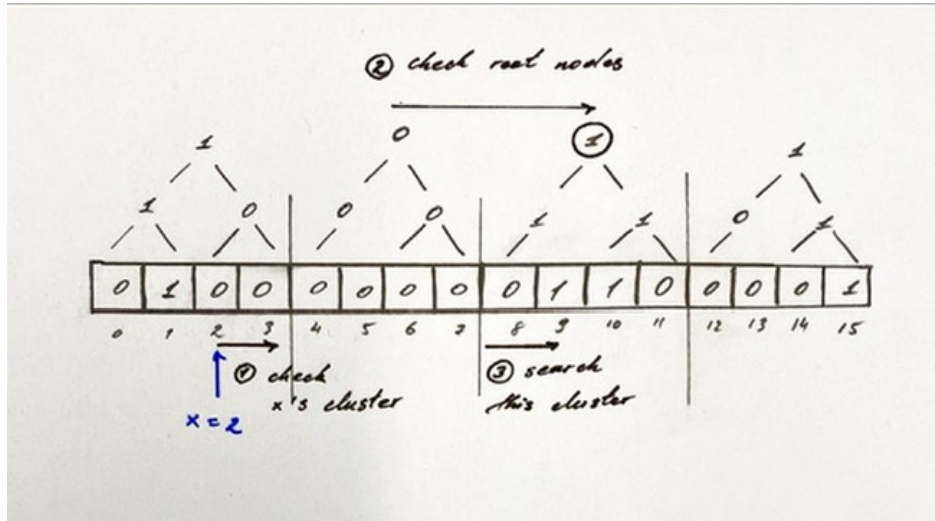 ② check root nodes
1 0 1 1
1 0 0 0 1 1 0 1
0 1 0 0 0 0 0 0 0 1 1 0 0 0 0 1
0 1 2 3 4 5 6 7 8 9 10 11 12 13 14 15
① check
x's cluster
③ search
this cluster
x=2